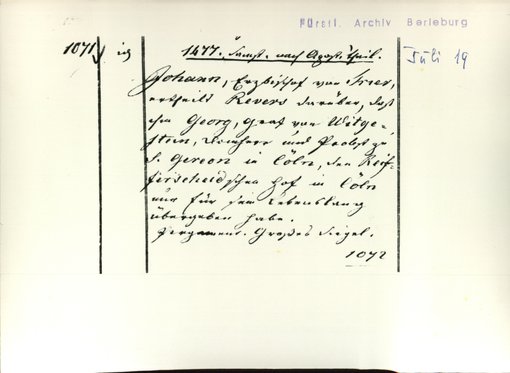 Fürstl. Archiv Berleburg
1071, ig 1477. Samst. nach Apost. Theil. Juli 19
Johann, Erzbischof von Trier,
ertheilt Revers darüber, daß
ihm Georg, Graf von Witge-
stein, Domherr und Probst zu
S. Gereon in Cöln, den Reif-
ferscheid'schen Hof in Cöln
nur für sein Lebenslang
übergeben habe.
Pergament. Großes Siegel.
1072